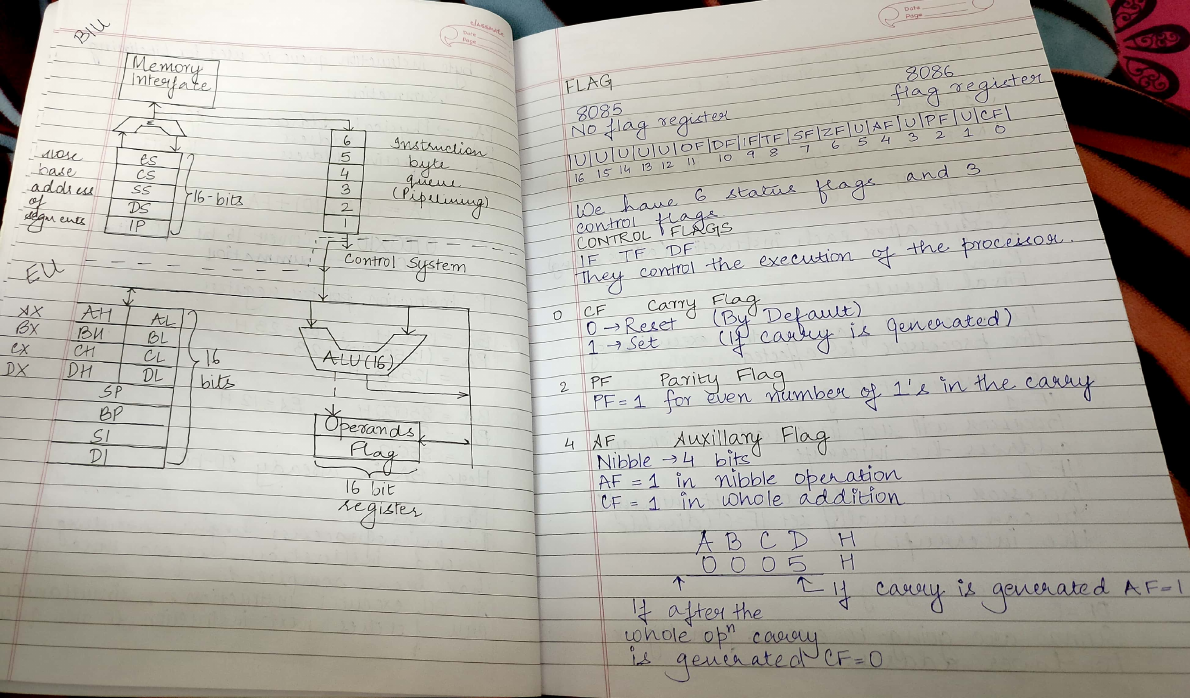 BIU
classmate
Date
Page
Memory
Interface
6
5
4
3
2
1
Instruction
byte
queue
(Pipelining)
base
address
of
segments
ES
CS
SS
DS
IP
16-bits
Control System
EU
AX AH AL
BX BH BL
CX CH CL
DX DH DL
SP
BP
SI
DI
16
bits
ALU(16)
Operands
Flag
16 bit
register
Date
Page
FLAG
8085
No flag register
8086
flag register
U U U U U OF DF IF TF SF ZF U AF U PF U CF
16 15 14 13 12 11 10 9 8 7 6 5 4 3 2 1 0
We have 6 status flags and 3
control flags
CONTROL FLAGS
IF TF DF
They control the execution of the processor.
0 CF Carry Flag
0 → Reset (By Default)
1 → Set (If carry is generated)
2 PF Parity Flag
PF = 1 for even number of 1's in the carry
4 AF Auxillary Flag
Nibble → 4 bits
AF = 1 in nibble operation
CF = 1 in whole addition
A B C D H
0 0 0 5 H
If carry is generated AF=1
If after the
whole opⁿ carry
is generated CF=0